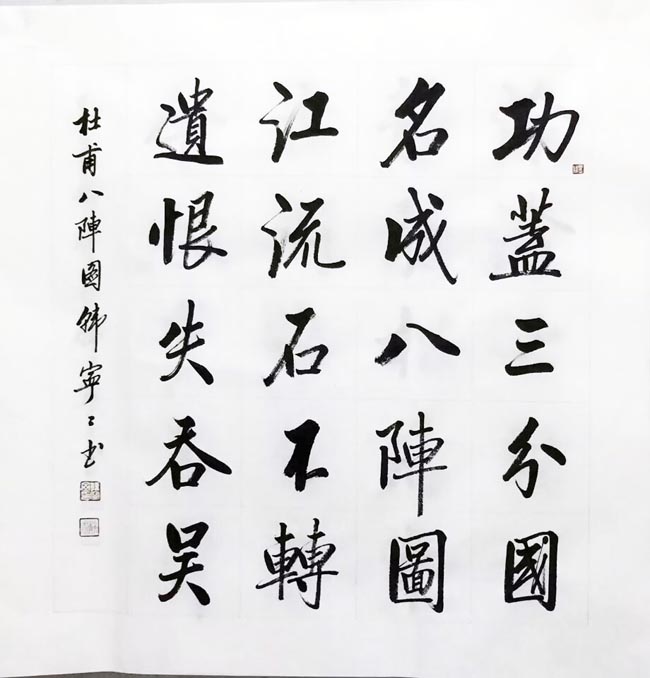 功蓋三分國
名成八陣圖
江流石不轉
遺恨失吞吴
杜甫八陣图韩寧〻书